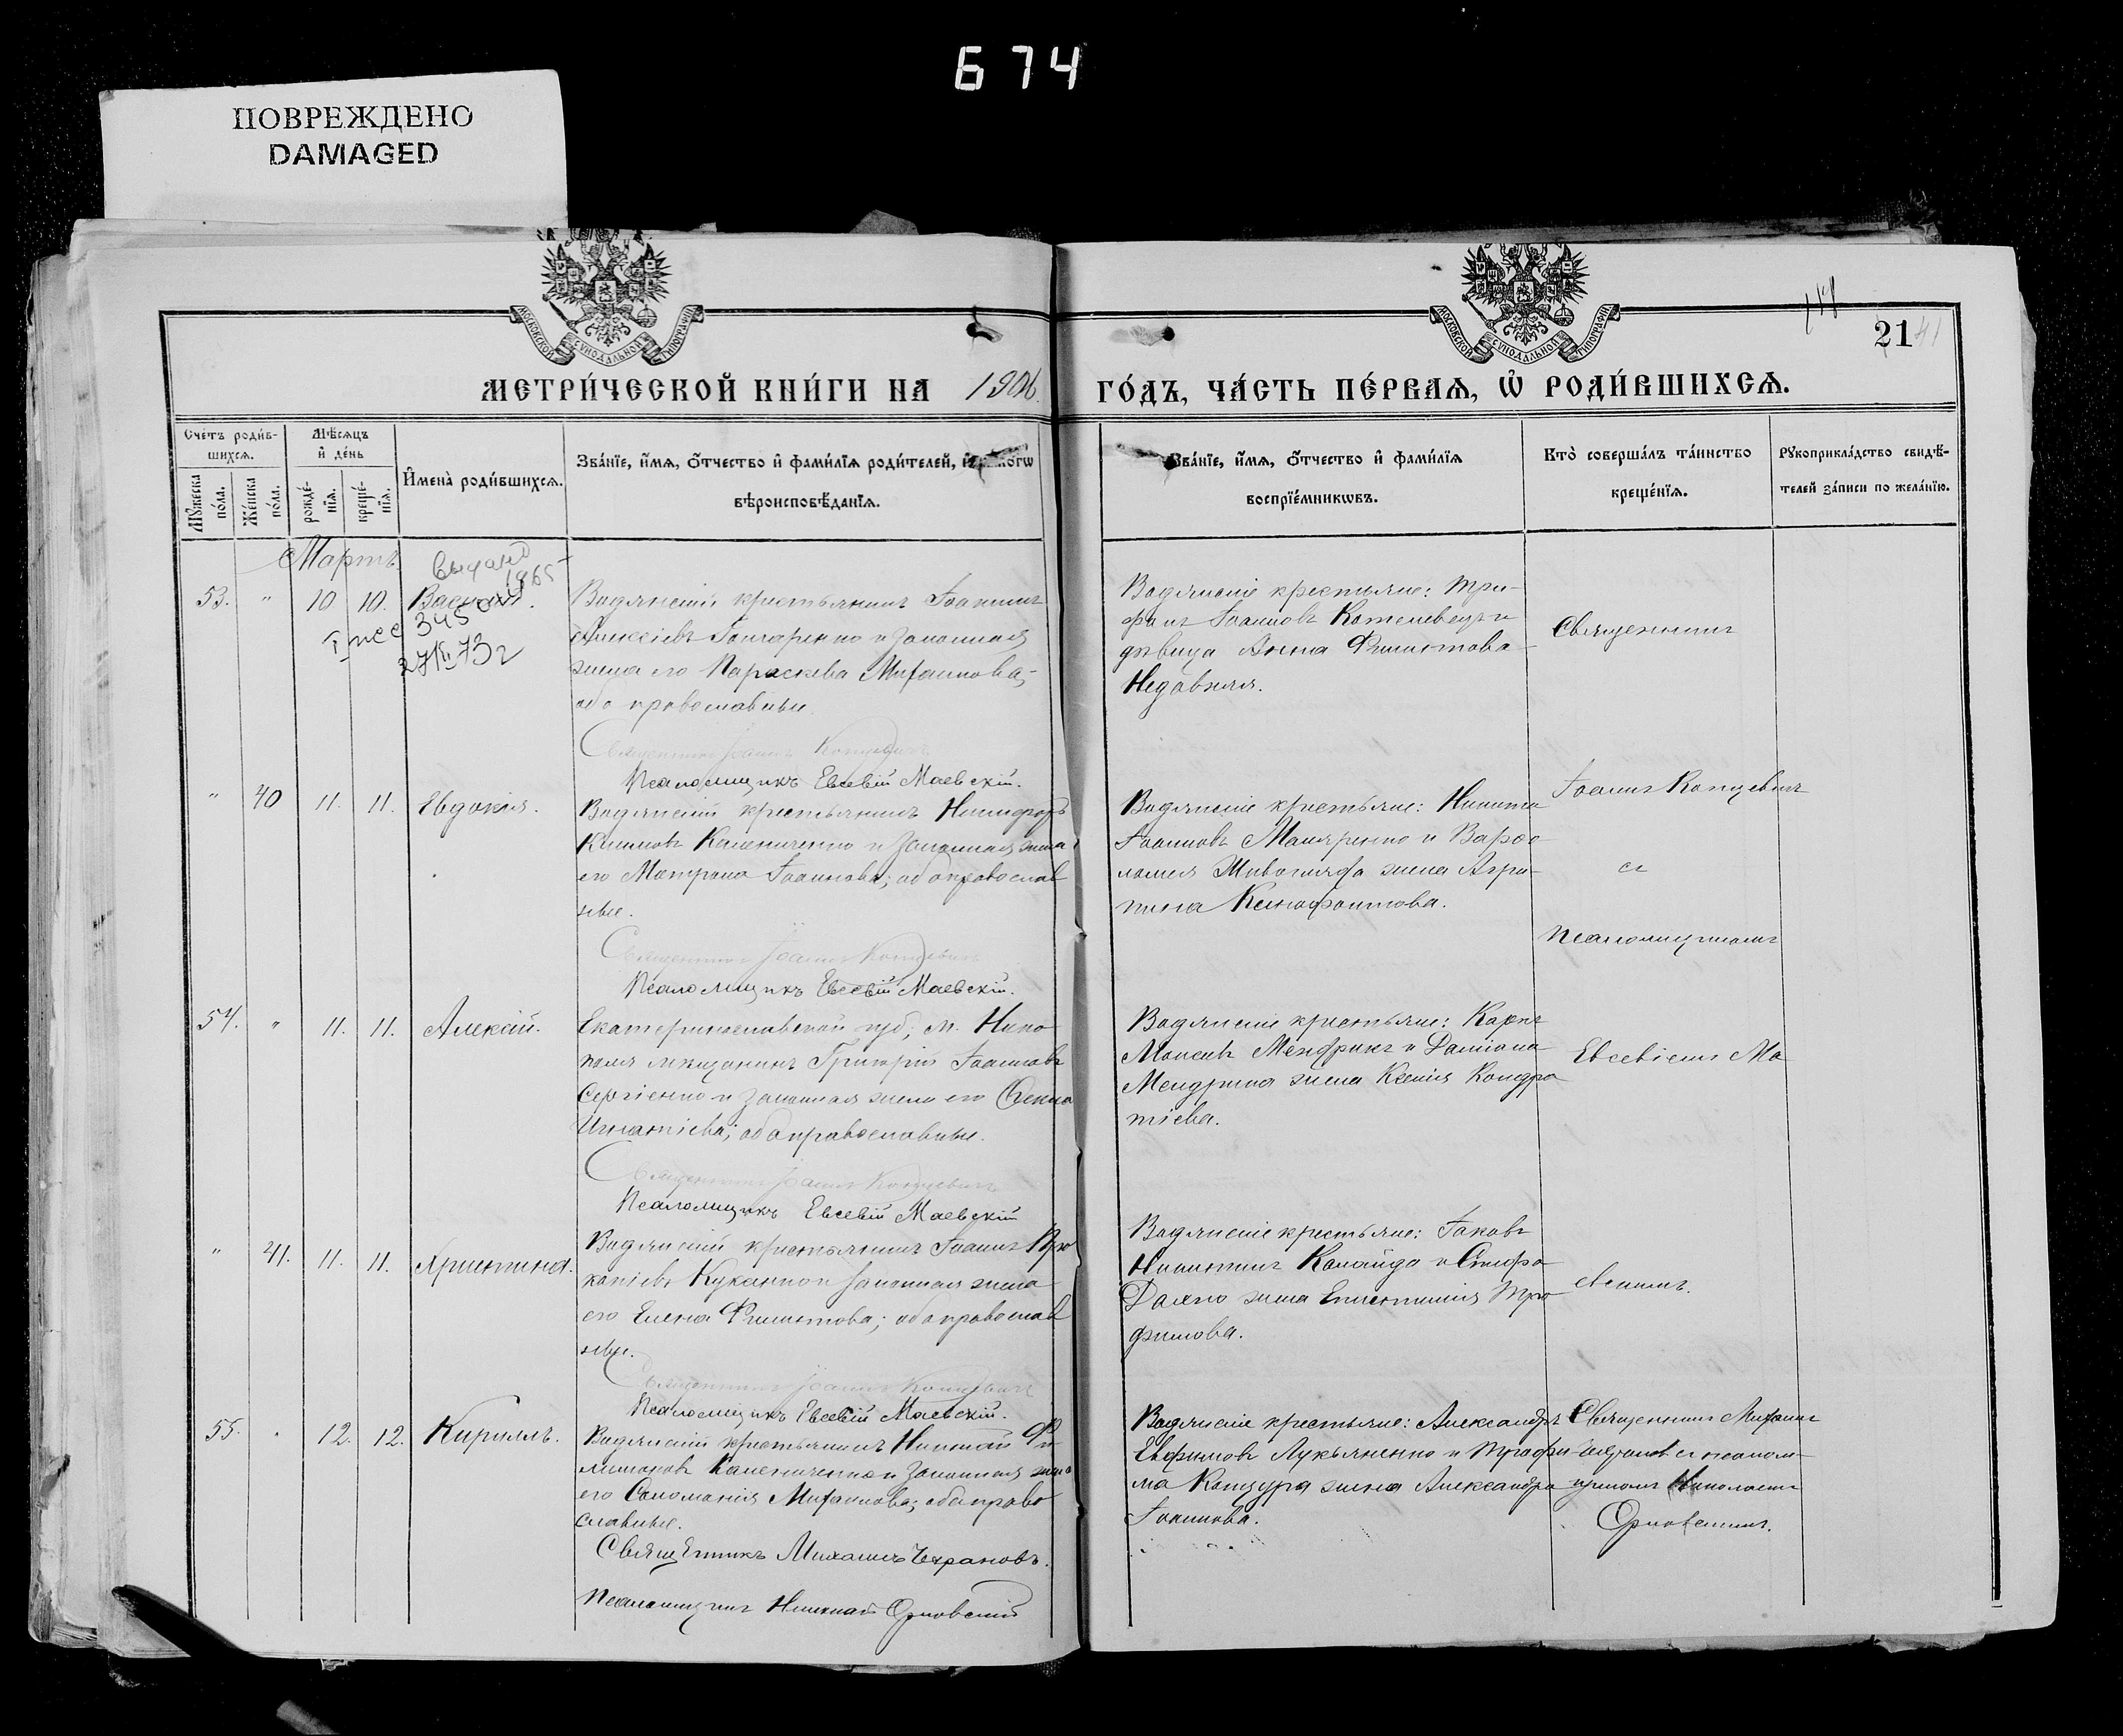 674
ПОВРЕЖДЕНО
DAMAGED
МОСКОВСКОЙ СѴНОДАЛЬНОЙ ТИПОГРАФІИ
МОСКОВСКОЙ СѴНОДАЛЬНОЙ ТИПОГРАФІИ
2141
МЕТРИ́ЧЕСКОЙ КНИ́ГИ НА 1906. ГО́ДЪ, ЧА́СТЬ ПЕ́РВАѦ, Ѡ҆ РОДИ́ВШИХСѦ.
Сче́тъ роди́в-
шихсѧ.
Мѣ́сѧцъ
и҆ де́нь
Мꙋ́жеска по́ла.
Же́нска по́ла.
рожде́-
нїѧ.
креще́-
нїѧ.
И҆мена̀ роди́вшихсѧ.
Зва́нїе, и҆́мѧ, ѻ҆́тчество и҆ фами́лїѧ роди́телей, и҆
вѣроисповѣ́данїѧ.
Зва́нїе, и҆́мѧ, ѻ҆́тчество и҆ фами́лїѧ
воспрїе́мникѡвъ.
Кто̀ соверша́лъ та́инство
креще́нїѧ.
Рꙋкоприкла́дство свидѣ́-
телей за́писи по жела́нїю.
Мартъ
53. " 10 10. Василій.
Водянскій крестьянинъ Іоаннъ
Алексіевъ Гончаренко и законная
жена его Параскева Михаилова;
оба православные.
Священникъ Іоаннъ Концевичъ
Псаломщикъ Евсевій Маевскій.
Водянскіе крестьяне: Три-
фонъ Іоанновъ Котелевецъ и
дѣвица Анна Филиппова
Недавняя.
Священникъ
" 40 11. 11. Евдокія.
Водянскій крестьянинъ Никифоръ
Климовъ Калениченко и законная жена
его Матрона Іоаннова; оба православ
ные.
Священникъ Іоаннъ Концевичъ
Псаломщикъ Евсевій Маевскій.
Водянскіе крестьяне: Никита
Іоанновъ Маляренко и Варѳо-
ломея жена Агри-
пина Ксенофонтова.
Іоаннъ Концевичъ
съ
псаломщикомъ
54. " 11. 11. Алексій.
Екатеринославской губ, м. Нико
поля мѣщанинъ Григорій Іоанновъ
Сергіенко и законная жена его Ѳекла
Игнатіева; оба православные.
Священникъ Іоаннъ Концевичъ
Псаломщикъ Евсевій Маевскій
Водянскіе крестьяне: Карпъ
Моисеевъ Мендрикъ и Даміана
Мендрика жена Ксенія Кондра
тіева.
Евсевіемъ Ма
" 41. 11. 11. Христина.
Водянскій крестьянинъ Іоаннъ Про
копіевъ Куканко и законная жена
его Елена Филиппова; оба православ
ные.
Священникъ Іоаннъ Концевичъ
Псаломщикъ Евсевій Маевскій.
Водянскіе крестьяне: Іаковъ
Никитинъ Калайда и
Дахно жена Епистимія Тро
фимова.
евскимъ.
55. " 12. 12. Кириллъ.
Водянскій крестьянинъ Николай Фи
лимоновъ Калениченко и законная жена
его Соломонія Михаилова; оба право
славные.
Священникъ Михаилъ Чехрановъ.
Псаломщикъ Николай Орловскій
Водянскіе крестьяне: Александръ
Евфимовъ Лукьяненко и Трофи
ма Кондура жена Александра
Іоаннова.
Священникъ Михаилъ
Чехрановъ съ псалом-
щикомъ Николаемъ
Орловскимъ.